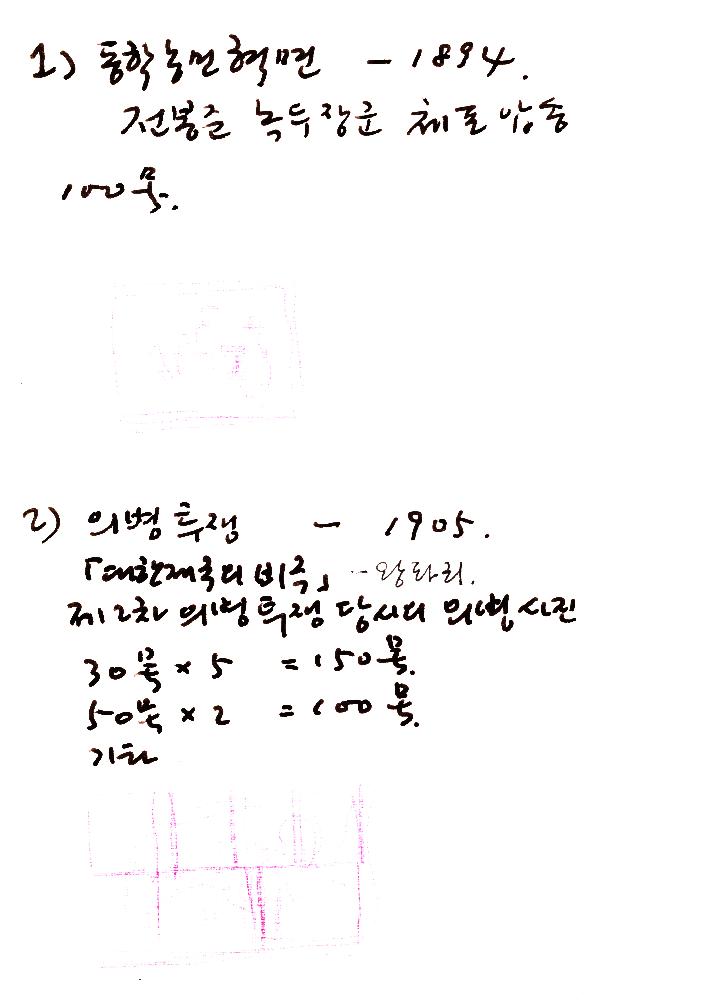 1) 동학농민혁명 - 1894.
전봉준 녹두장군 체포 압송
100号.
2) 의병투쟁 - 1905.
「대한제국의 비극」 -- 왕타리.
제12차 의병투쟁 당시의 의병사진
30号 × 5 = 150号.
50号 × 2 = 100号.
기타